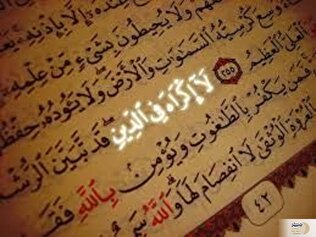 عنده إلا بإذنه يعلم
ولا يحيطون بشيء من علمه
وسع كرسيه السموات والأرض ولا يئوده حفظهما
العلي العظيم ٢٥٥ لا إكراه في الدين قد تبين الرشد
فمن يكفر بالطغوت ويؤمن بالله فقد
بالعروة الوثقى لا انفصام لها والله سميع
٤٢